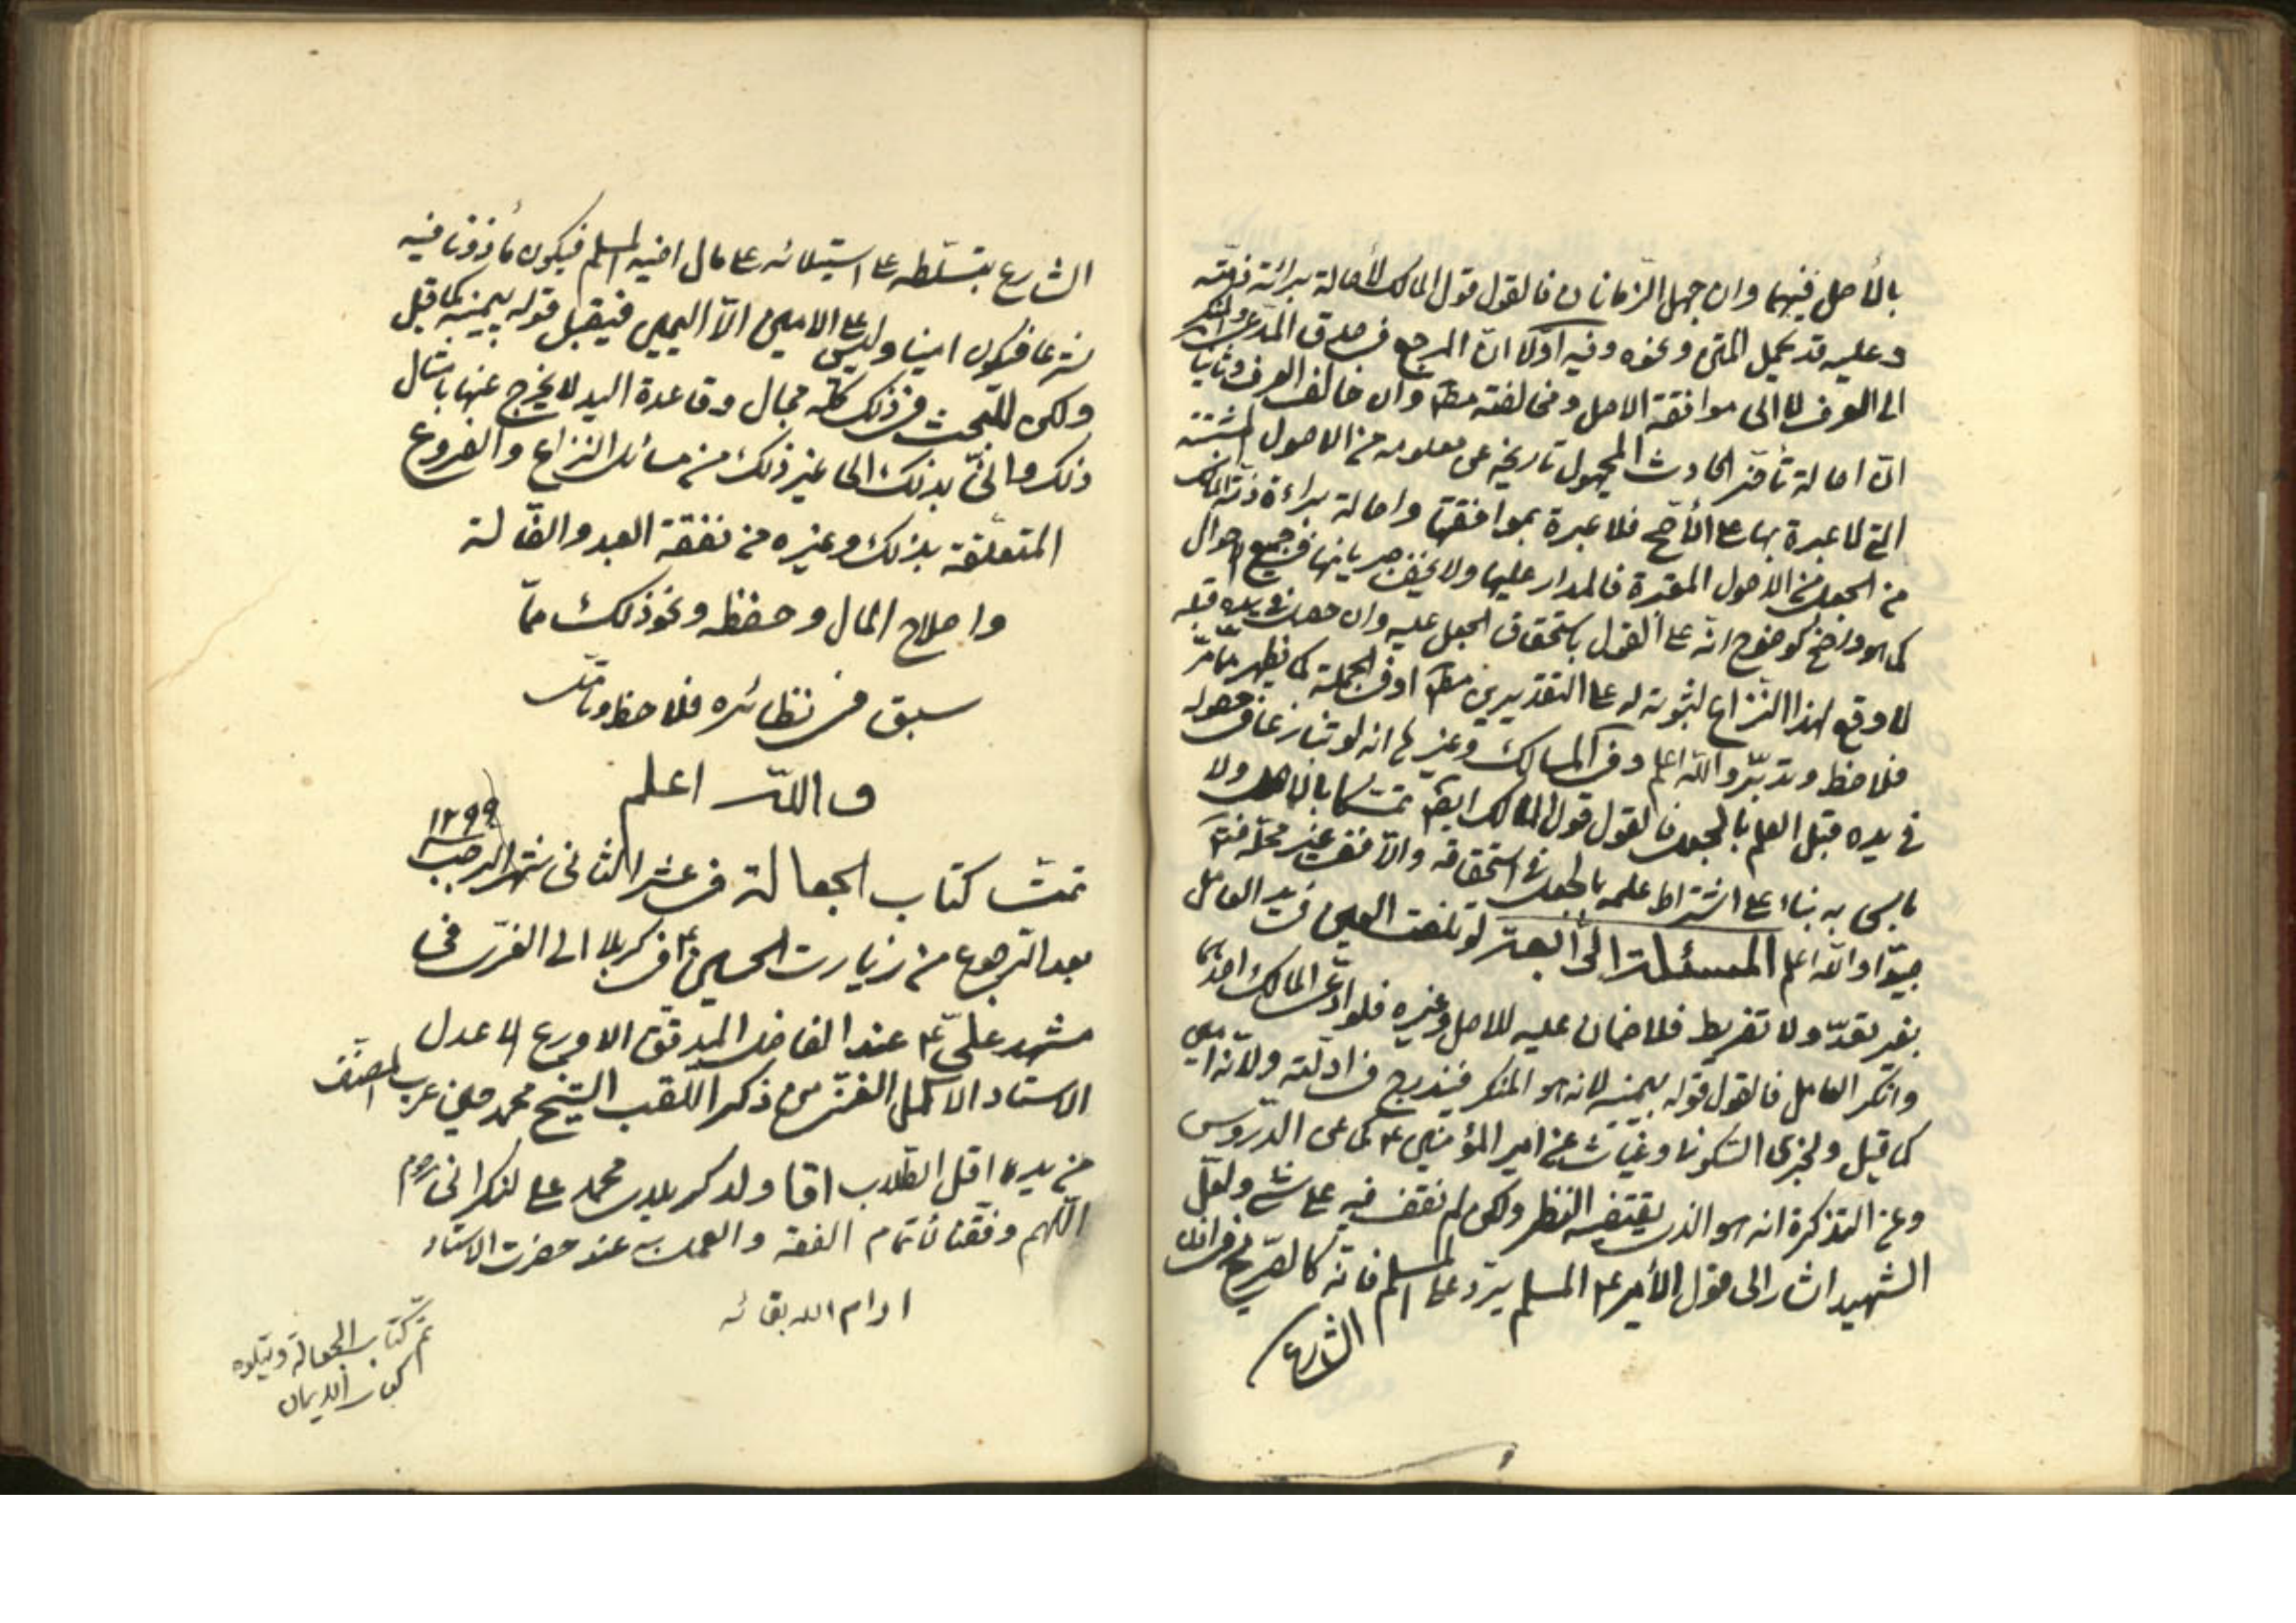 بالأصل فيهما وان جهل الزمانان فالقول قول المالك لأصالة برائة ذمته
وعليه قد يحمل المتن ونحوه وفيه اولا ان المرجع في صدق المدعي والمنكر
الى العرف لا الى موافقة الاصل ومخالفته مط وان خالف العرف وثانيا
ان اصالة تأخر الحادث المجهول تاريخه عن معلومه من الاصول المثبتة
التي لا عبرة بها على الأصح فلا عبرة بموافقتها واصالة براءة ذمة المالك
من الجعل من الاصول المقررة فالمدار عليها ولا يخفى جريانها في جميع الاحوال
كما هو واضح كوضوح انه على القول باستحقاق الجعل عليه وان حصل في يده قبله
لا وقع لهذا النزاع لثبوته له على التقديرين مط او في الجملة كما يظهر مما مر
فلاحظ وتدبر والله اعلم وفي المسالك وغيرها انه لو تنازعا في حصوله
في يده قبل العلم بالجعل فالقول قول المالك ايضا تمسكا بالاصل ولا
بأس به بناء على اشتراط علمه بالجعل في استحقاقه والا ففي غير محله
جدا والله اعلم المسئلة الرابعة لو تلفت العين في يد العامل
بغير تعد ولا تفريط فلا ضمان عليه للاصل وغيره فلو ادعى المالك احدهما
وانكر العامل فالقول قوله بيمينه لانه هو المنكر فيندرج في ادلته ولأنه امين
كما قيل ولخبري السكوني وغياث عن امير المؤمنين ع كما عن الدروس
وعن التذكرة انه هو الذي يقتضيه النظر ولكن لم نقف فيه على شئ ولعل
الشهيد اشار الى قول الأمير ع المسلم يرد على المسلم فانه كالصريح في اذن
الشارع
الشارع بتسلطه على استيلائه على مال اخيه المسلم فيكون مأذونا فيه
شرعا فيكون امينا وليس على الامين الا اليمين فيقبل قوله بيمينه كما قيل
ولكن للبحث في ذلك كله مجال وقاعدة اليد لا يخرج عنها بامثال
ذلك والحق بذلك الحا غير ذلك من مسائل النزاع والفروع
المتعلقة بذلك وغيره من نفقة العبد والضالة
واصلاح المال وحفظه ونحو ذلك مما
سبق في نظائره فلاحظ وتأمل
والله اعلم
تمت كتاب الجعالة في عشر الثاني شهر الرجب ١٢٩٩
بعد الرجوع من زيارت الحسين ع في كربلا الى الغري في
مشهد علي ع عند الفاضل المدقق الاورع الاعدل
الاستاد الاكمل الغني من ذكر اللقب الشيخ محمد حسن عرب المصنف
من يد اقل الطلاب اقا ولد كربلاي محمد علي لنكراني
اللهم وفقنا لأتمام الفقه والعمل به عند حضرت الاستاد
ادام الله بقائه
تم كتاب الجعالة ويتلوه
كتاب الايمان